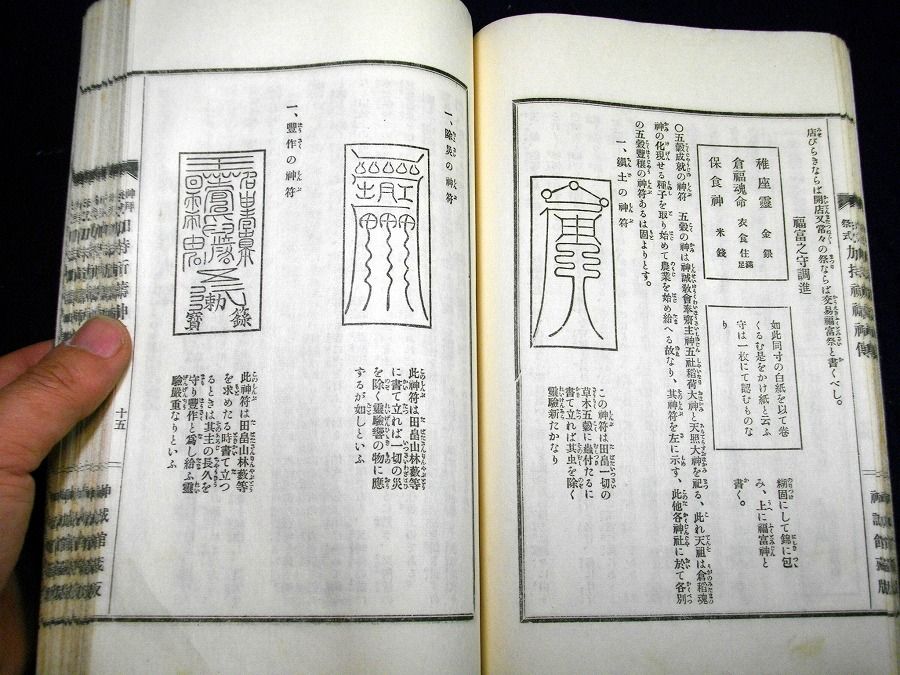 店びらきならば開店又當々の祭ならば交易福富祭と書くべし。
福富之守調進
稚座靈 金銀
倉稻魂命 衣食住滿足
保食神 米錢
如此同寸の白紙を以て卷
くるむ是をかけ紙と云ふ
守は一枚にて認むものな
り
糊固にして錦に包
み、上に福富神と
書く。
〇五穀成就の神符 五穀の神は神誠敎會奉齋主神五社稻荷大神と天照大神を祀る、此れ天祖は倉稻魂
神の化現せる種子を取り始めて農業を始め給へる故なり、其神符を左に示す、此他各神社に於て各別
の五穀豐穰の神符あるは固よりとす。
一、鎭土の神符
この神符は田畠一切の
草木五穀に蟲付たるに
書て立れば其虫を除く
靈驗新たかなり
一、除災の神符
此神符は田畠山林藪等
に書て立れば一切の災
を除く靈驗響の物に應
するが如しといふ
一、豐作の神符
此神符は田畠山林藪等
を求めたる時書て立つ
るときは其主の長久を
守り豐作と爲し給ふ靈
驗嚴重なりといふ
十五